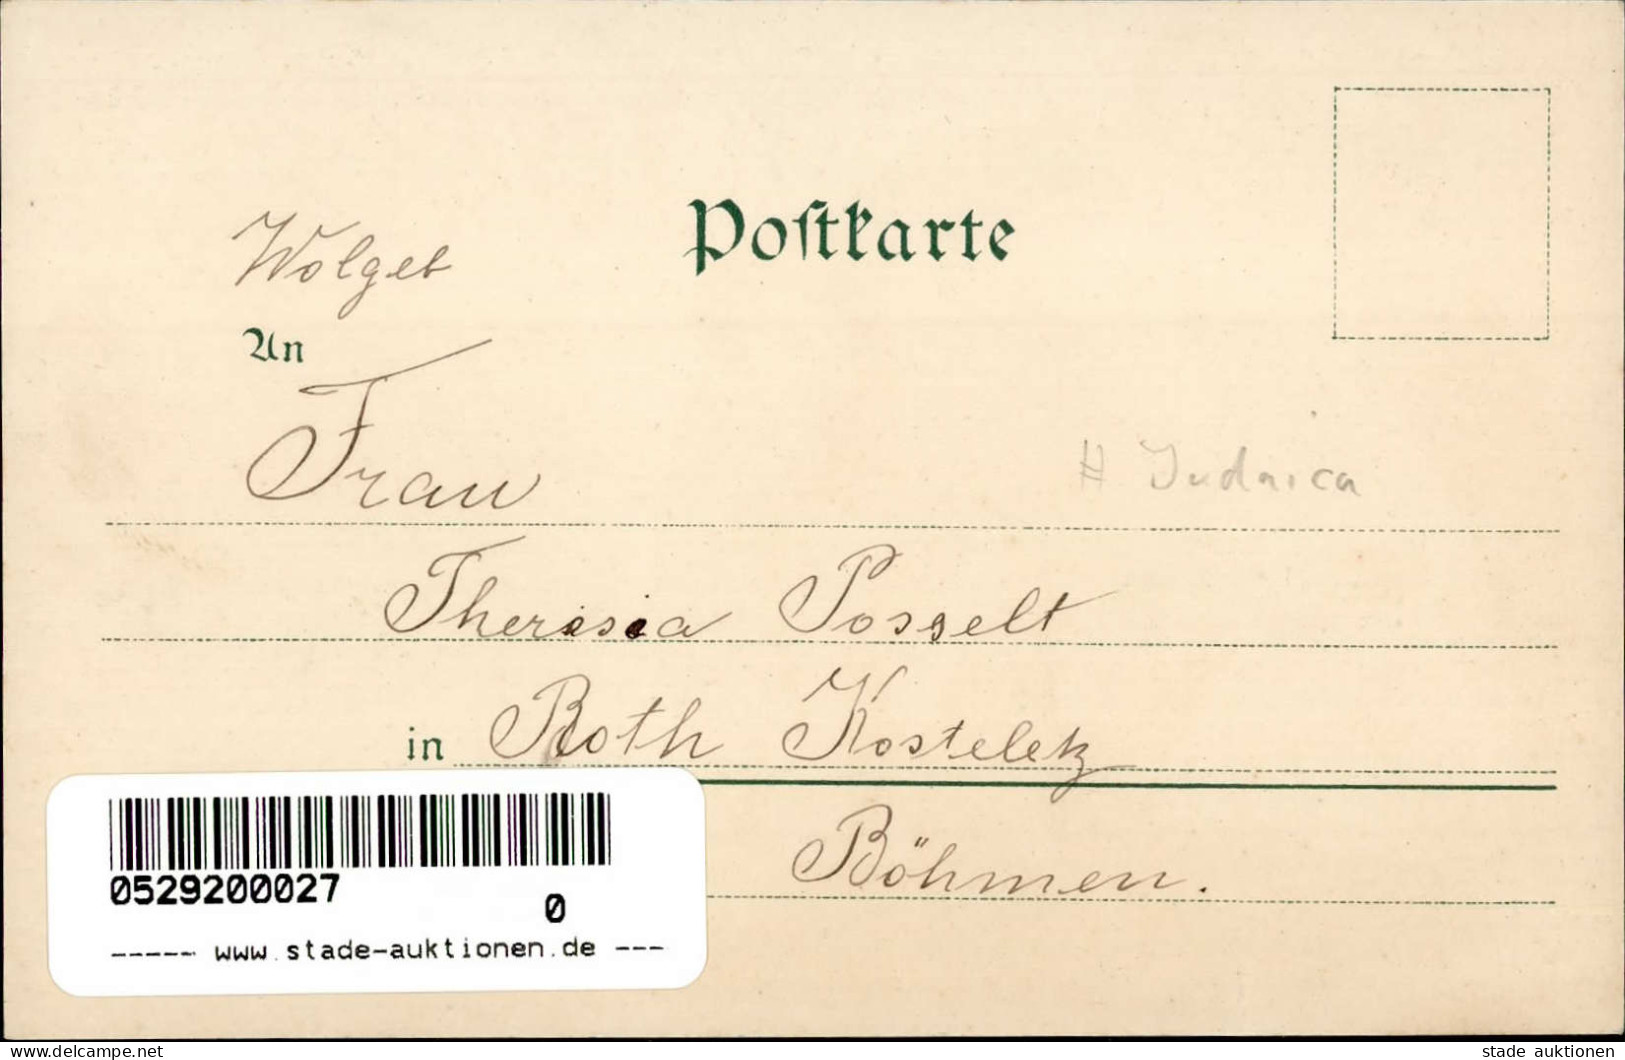 Postkarte
Wolgeb
An
Frau
# Judaica
Theresia Posselt
in Roth Kosteletz
Böhmen.
0529200027
0
----- www.stade-auktionen.de ---
delcampe.net
stade auktionen